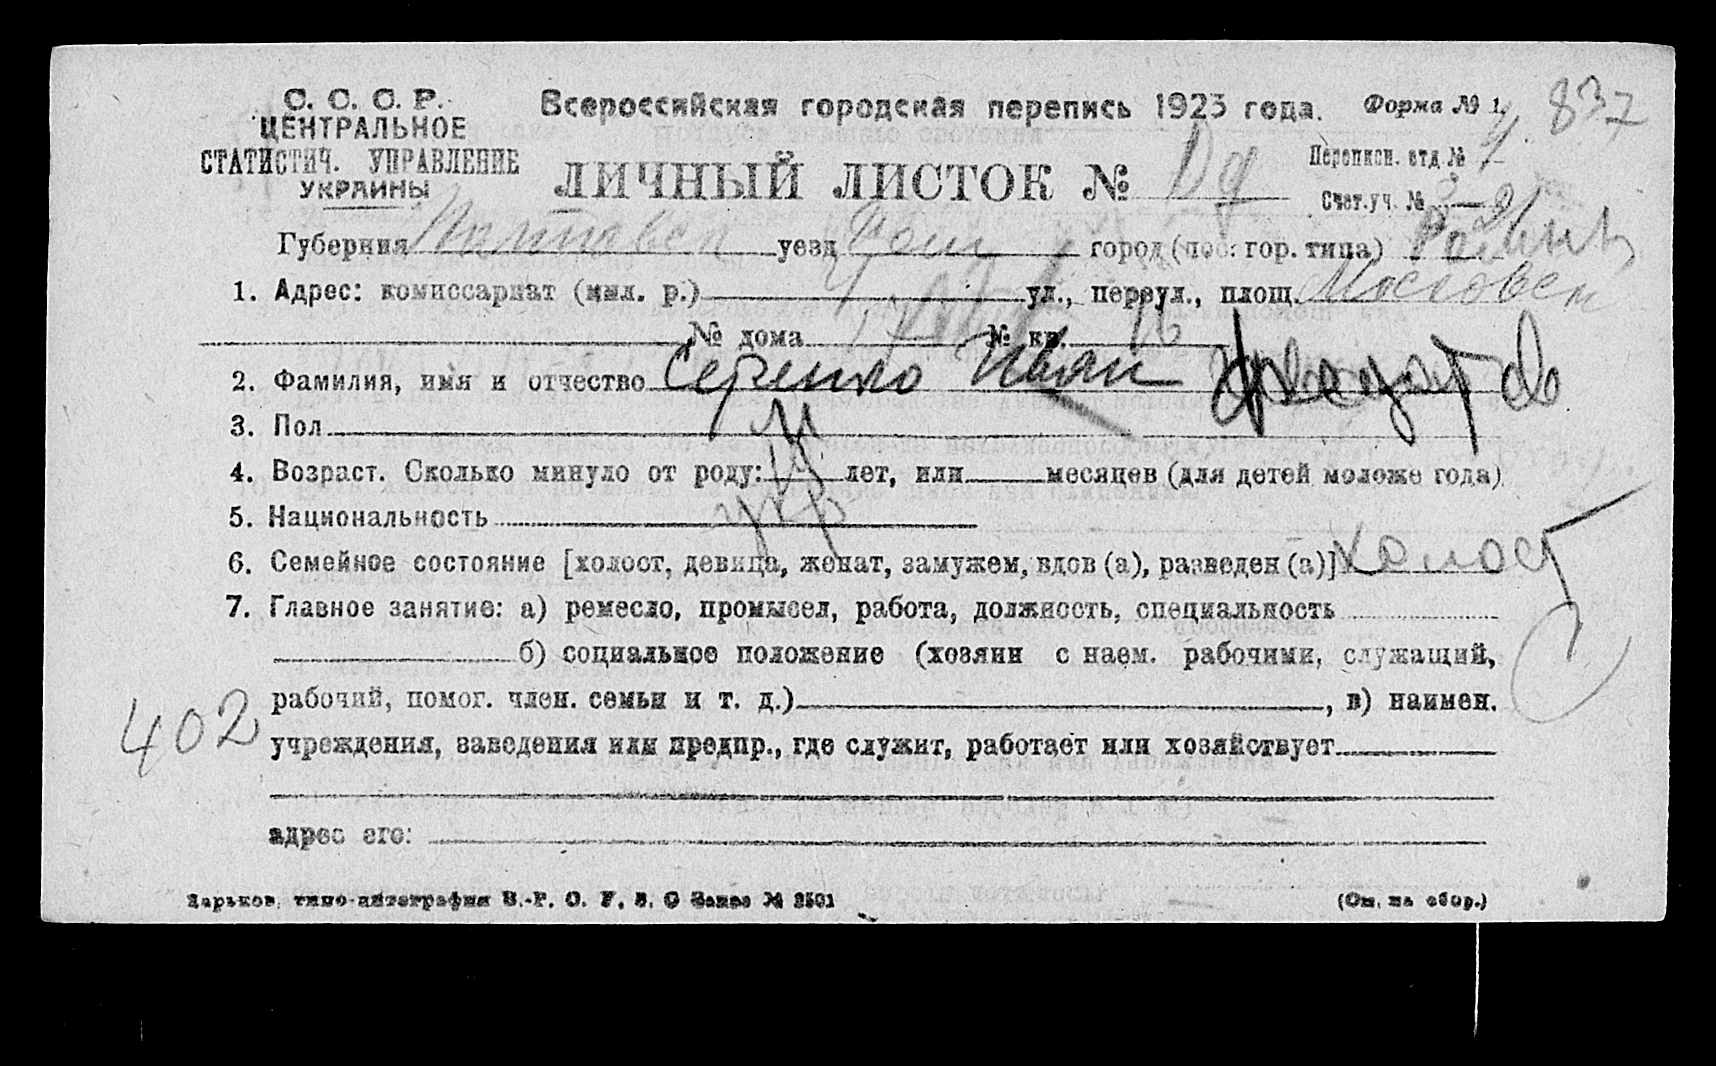 С. С. С. Р.
ЦЕНТРАЛЬНОЕ
СТАТИСТИЧ. УПРАВЛЕНИЕ
УКРАИНЫ
Всероссийская городская перепись 1923 года. Форма № 1. 837
ЛИЧНЫЙ ЛИСТОК №
Переписн. отд. №
Счет. уч. №
Губерния Полтавск уезд Ром город (пос. гор. типа) Ромны
1. Адрес: комиссариат (мил. р.) ул., переул., площ. Московск
№ дома 17 № кв. 16
2. Фамилия, имя и отчество Сергенко Иван
3. Пол м
4. Возраст. Сколько минуло от роду: лет, или месяцев (для детей моложе года)
5. Национальность укр
6. Семейное состояние [холост, девица, женат, замужем, вдов (а), разведен (а)] холост
7. Главное занятие: а) ремесло, промысел, работа, должность, специальность
б) социальное положение (хозяин с наем. рабочими, служащий,
рабочий, помог. член. семьи и т. д.) , в) наимен.
402
учреждения, заведения или предпр., где служит, работает или хозяйствует
адрес его:
Харьков, типо-литография В.-Р. О. У. В. О Заказ № 3501 (См. на обор.)